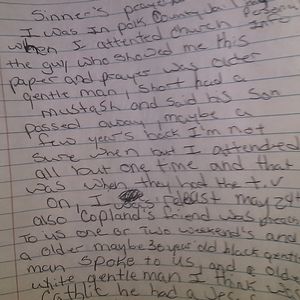 Sinner's prayer
I was in polk County Jail
when I attented church Info
the guy, who showed me this
paper and prayer was older
gentle man, short had a
mustash and said his son
passed away, maybe a
few year's back I'm not
sure when but I attendred
all but one time and that
was when they had the t.v
on, I was May 24
also 'Copland's friend was
To us one or Two weekend's and
a older maybe 30 year old black gentle
man spoke to us and a older
white gentleman I think was
Cathlic he had a